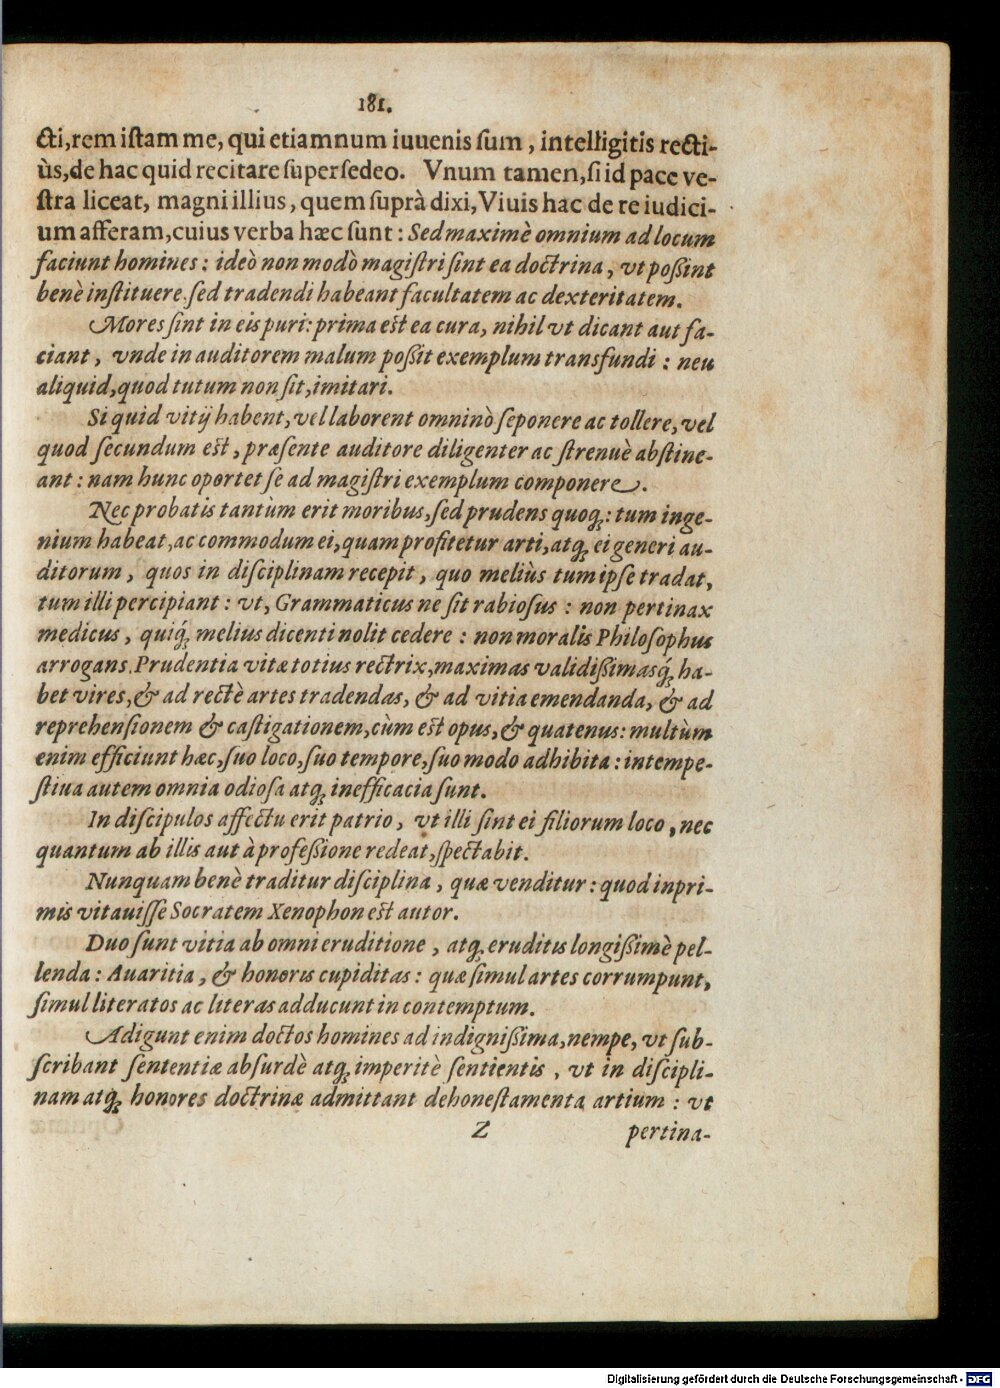 181.
cti, rem iſtam me, qui etiamnum iuuenis ſum, intelligitis recti-
ùs, de hac quid recitare ſuperſedeo. Vnum tamen, ſi id pace ve-
ſtra liceat, magni illius, quem ſuprà dixi, Viuis hac de re iudici-
um afferam, cuius verba hæc ſunt: Sed maximè omnium ad locum
faciunt homines: ideò non modò magiſtri ſint ea doctrina, vt poßint
benè inſtituere, ſed tradendi habeant facultatem ac dexteritatem.
Mores ſint in eis puri: prima eſt ea cura, nihil vt dicant aut fa-
ciant, vnde in auditorem malum poßit exemplum transfundi: neu
aliquid, quod tutum non ſit, imitari.
Si quid vitij habent, vel laborent omninò ſeponere ac tollere, vel
quod ſecundum eſt, præſente auditore diligenter ac ſtrenuè abſtine-
ant: nam hunc oportet ſe ad magiſtri exemplum componere.
Nec probatis tantùm erit moribus, ſed prudens quoq́;: tum inge-
nium habeat, ac commodum ei, quam profitetur arti, atq́; ei generi au-
ditorum, quos in diſciplinam recepit, quo meliùs tum ipſe tradat,
tum illi percipiant: vt, Grammaticus ne ſit rabioſus: non pertinax
medicus, quiq́; melius dicenti nolit cedere: non moralis Philoſophus
arrogans. Prudentia vitæ totius rectrix, maximas validißimasq́; ha-
bet vires, & ad rectè artes tradendas, & ad vitia emendanda, & ad
reprehenſionem & caſtigationem, cùm eſt opus, & quatenus: multùm
enim efficiunt hæc, ſuo loco, ſuo tempore, ſuo modo adhibita: intempe-
ſtiua autem omnia odioſa atq́; inefficacia ſunt.
In diſcipulos affectu erit patrio, vt illi ſint ei filiorum loco, nec
quantum ab illis aut à profeßione redeat, ſpectabit.
Nunquam benè traditur diſciplina, quæ venditur: quod inpri-
mis vitauiſſe Socratem Xenophon eſt autor.
Duo ſunt vitia ab omni eruditione, atq́; eruditis longißimè pel-
lenda: Auaritia, & honoris cupiditas: quæ ſimul artes corrumpunt,
ſimul literatos ac literas adducunt in contemptum.
Adigunt enim doctos homines ad indignißima, nempe, vt ſub-
ſcribant ſententiæ abſurdè atq́; imperitè ſentientis, vt in diſcipli-
nam atq́; honores doctrinæ admittant dehoneſtamenta artium: vt
Z pertina-
Digitalisierung gefördert durch die Deutsche Forschungsgemeinschaft - DFG